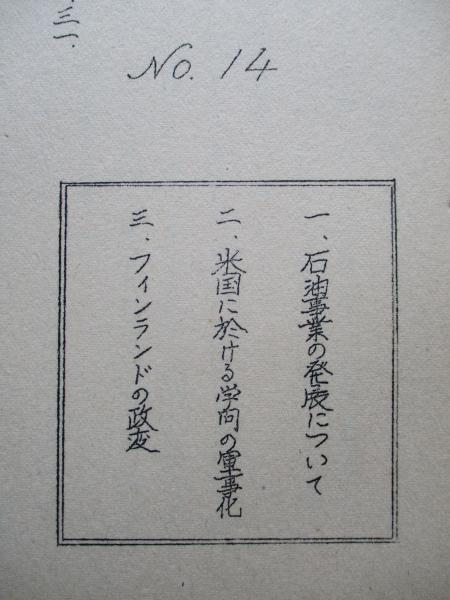 三一.
No. 14
一、石油事業の発展について
二、米国に於ける学問の軍事化
三、フィンランドの政変